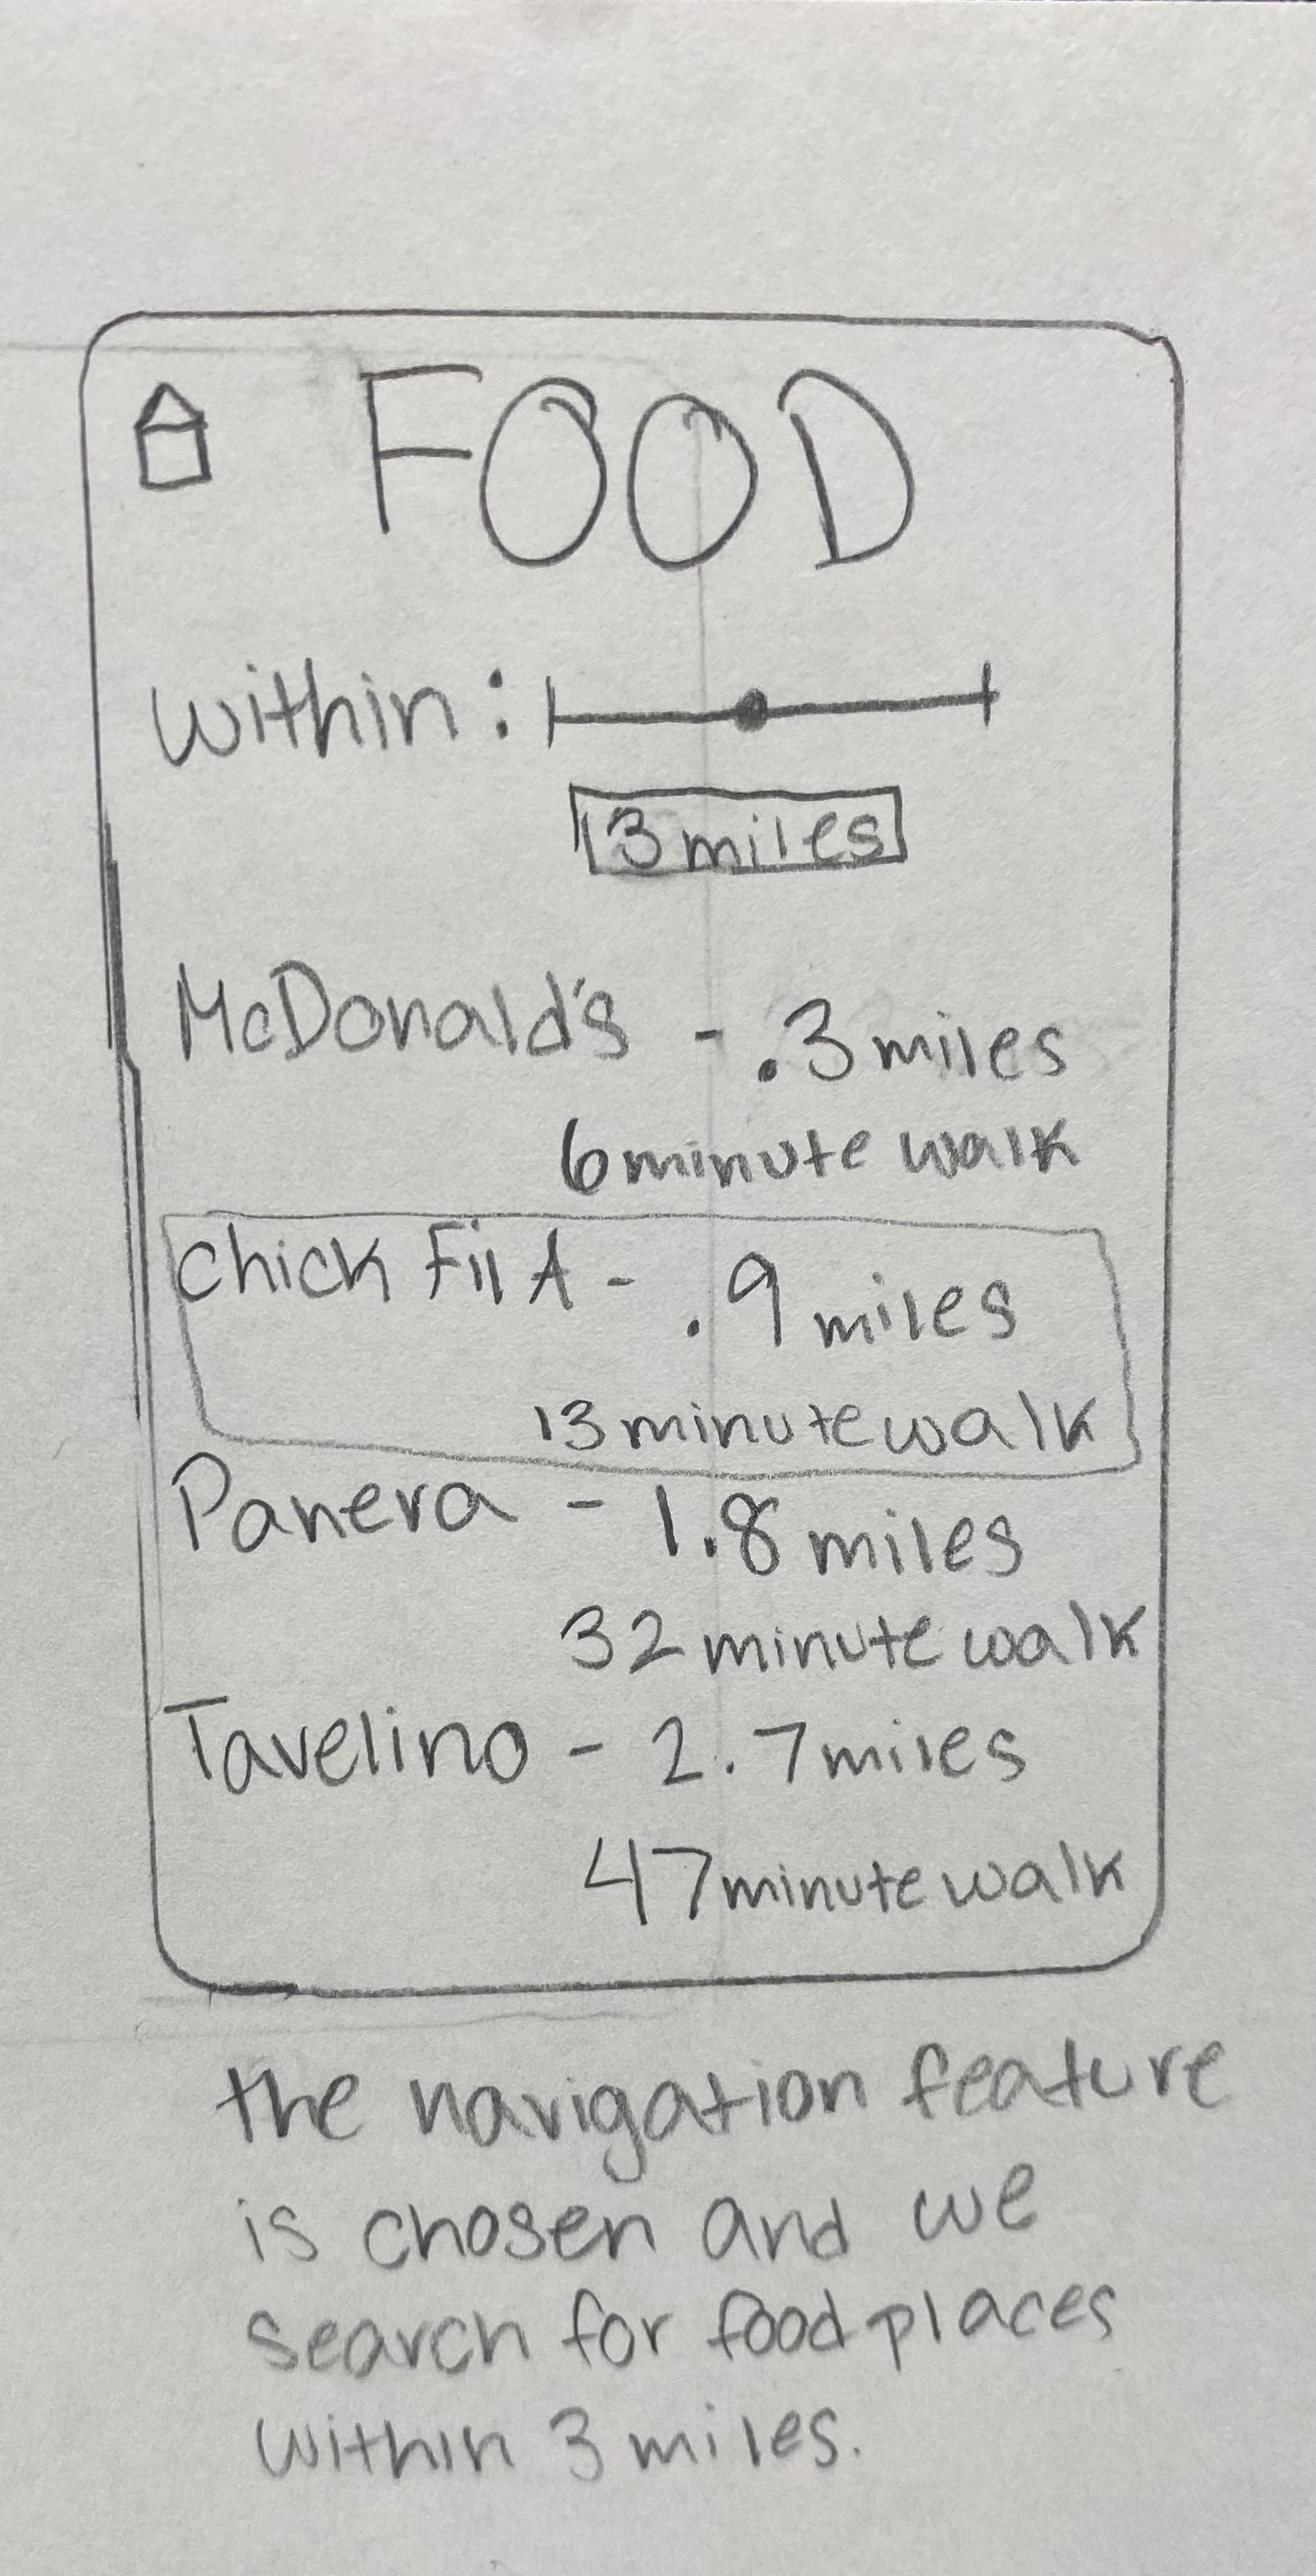 FOOD
within:
3 miles
McDonald's - .3 miles
6 minute walk
Chick Fil A - .9 miles
13 minute walk
Panera - 1.8 miles
32 minute walk
Tavelino - 2.7 miles
47 minute walk
the navigation feature
is chosen and we
search for food places
within 3 miles.